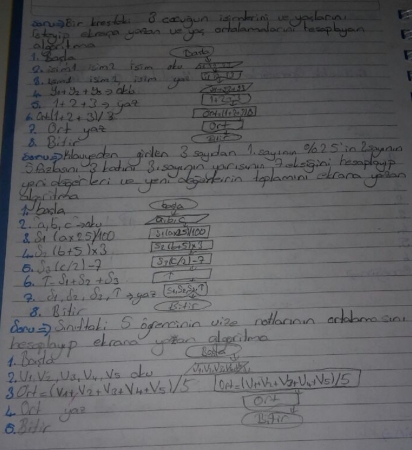 Soru=) Bir kresteki 3 çocuğun isimlerini ve yaşlarını
isteyip ekrana yazan ve yaş ortalamalarını hesaplayan
algoritma
1. Başla
Başla
2. isim1 isim2 isim oku
3. isim1 isim2, isim yaz
4. y1+y2+y3 → oku
5. 1+2+3 → yaz
6. Ort(1+2+3)/3
7. Ort yaz
Ort
8. Bitir
Bitir
Soru=) Klavyeden girilen 3 sayıdan 1. sayının %25'in 2. sayının
5 fazlasını 3 katını 3. sayının yarısının 7 eksiğini hesaplayıp
yeni değerleri ve yeni değerlerin toplamını ekrana yazan
algoritma
1. başla
başla
2. a, b, c → oku
a, b, c
3. S1 (ax25)/100
S1(ax25)/100
4. S2 (b+5)x3
S2(b+5)x3
5. S3 (c/2)-7
S3(c/2)-7
6. T=S1+S2+S3
T
7. S1, S2, S3, T → yaz
S1, S2, S3, T
8. Bitir
Bitir
Soru=) Sınıftaki 5 öğrencinin vize notlarının ortalamasını
hesaplayıp ekrana yazan algoritma
1. Başla
Başla
2. V1, V2, V3, V4, V5 oku
V1, V2, V3, V4, V5
3. Ort=(V1+V2+V3+V4+V5)/5
Ort=(V1+V2+V3+V4+V5)/5
4. Ort yaz
Ort
5. Bitir
Bitir